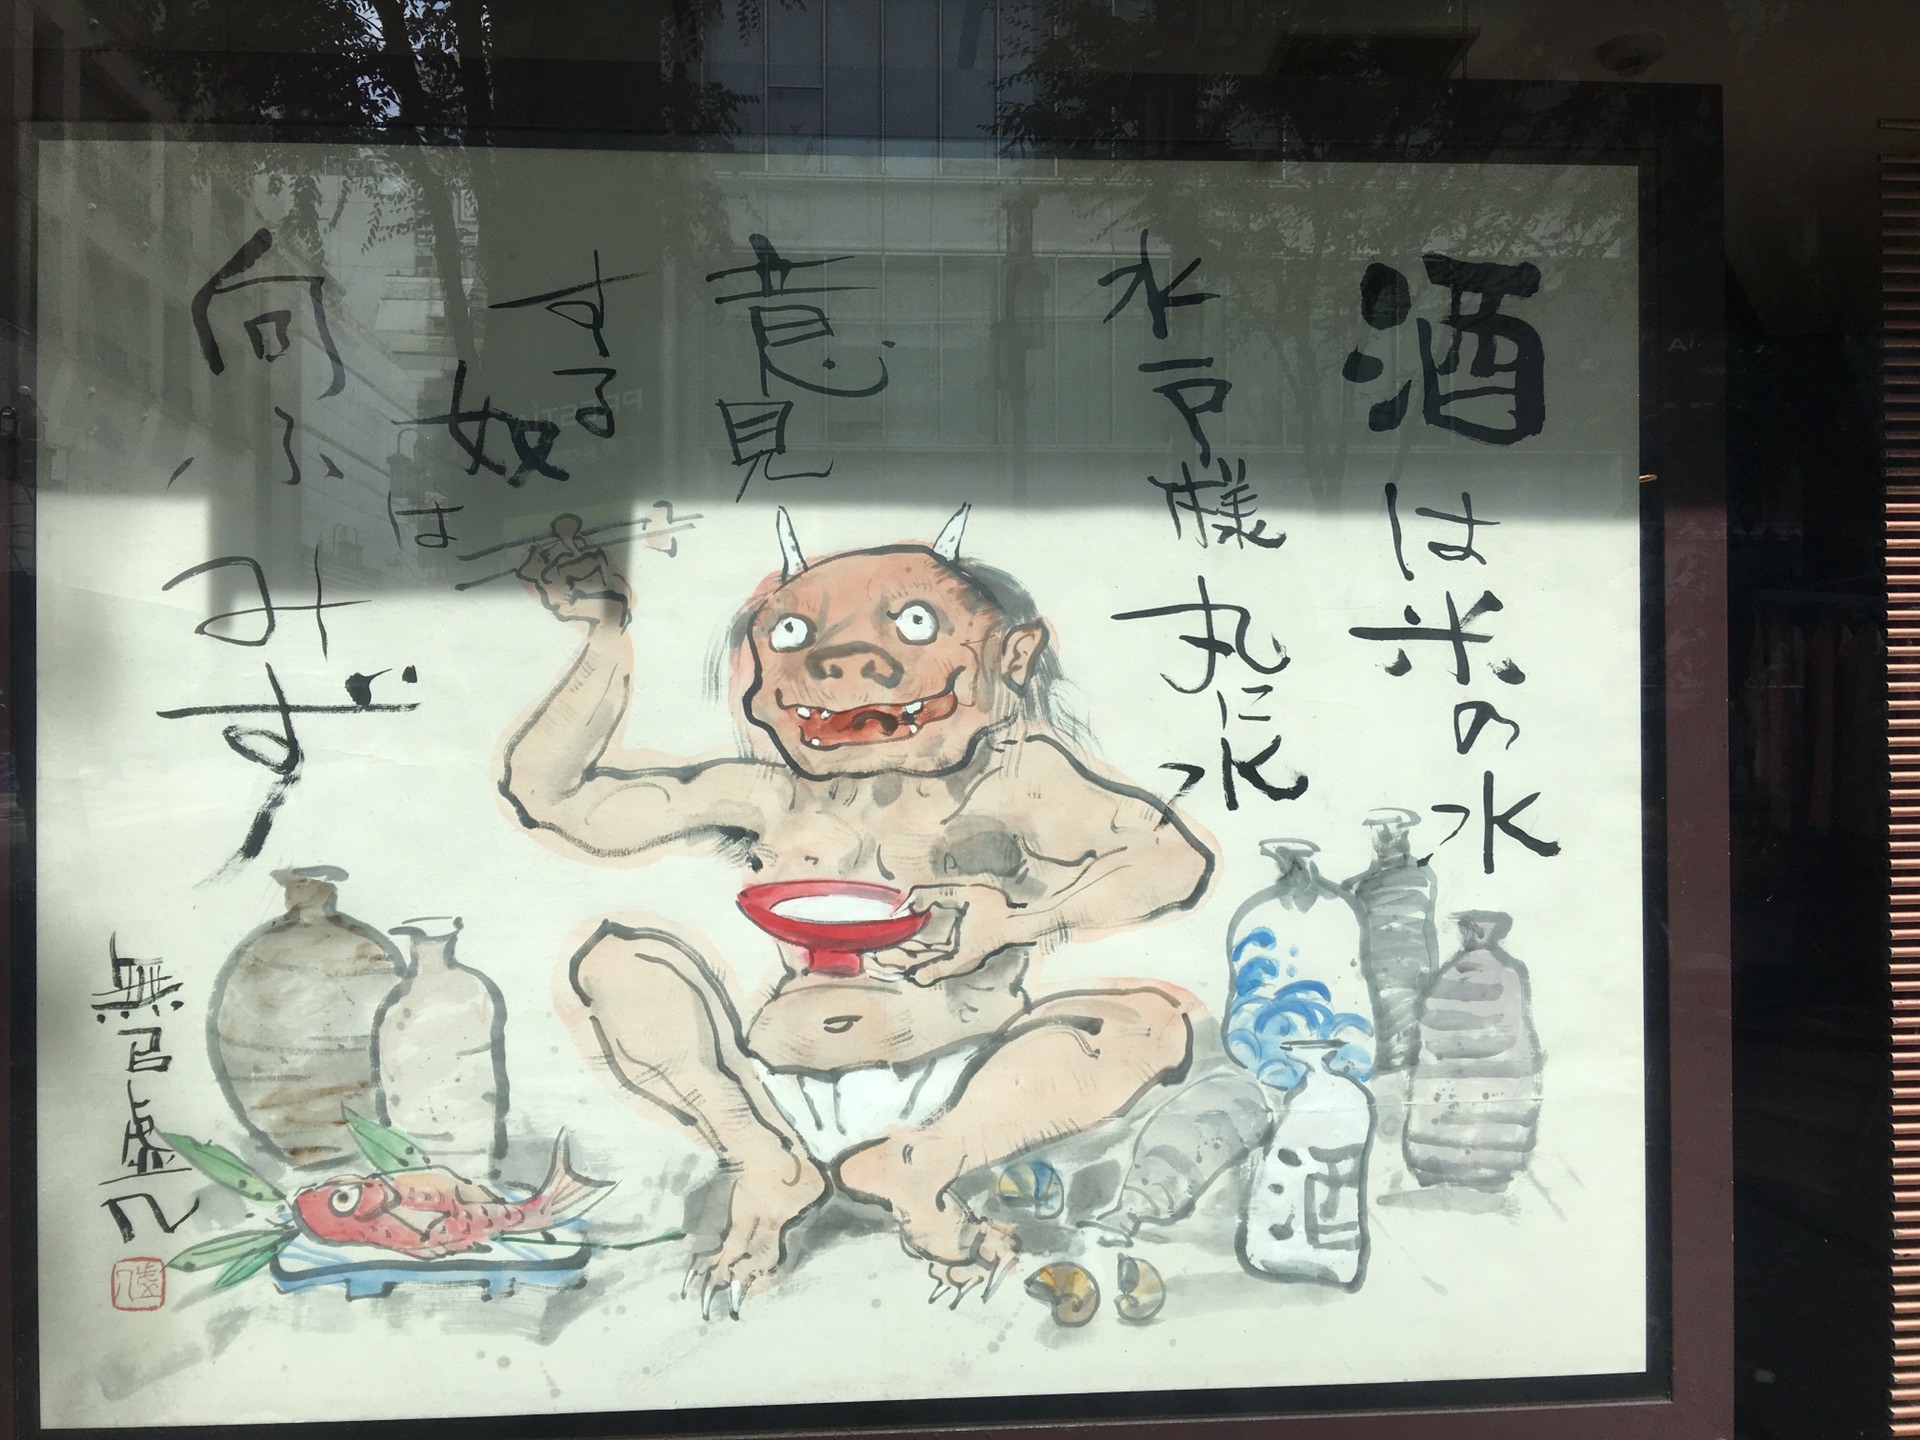 酒は米の水
水戸様丸に水
意見
する
奴は
向ふみず
無百虚凡
酒